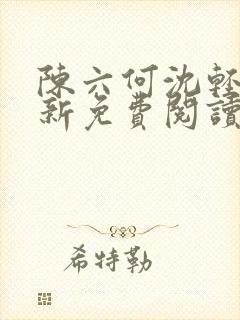 陳六何沈輕
新免費閱讀
希特勒